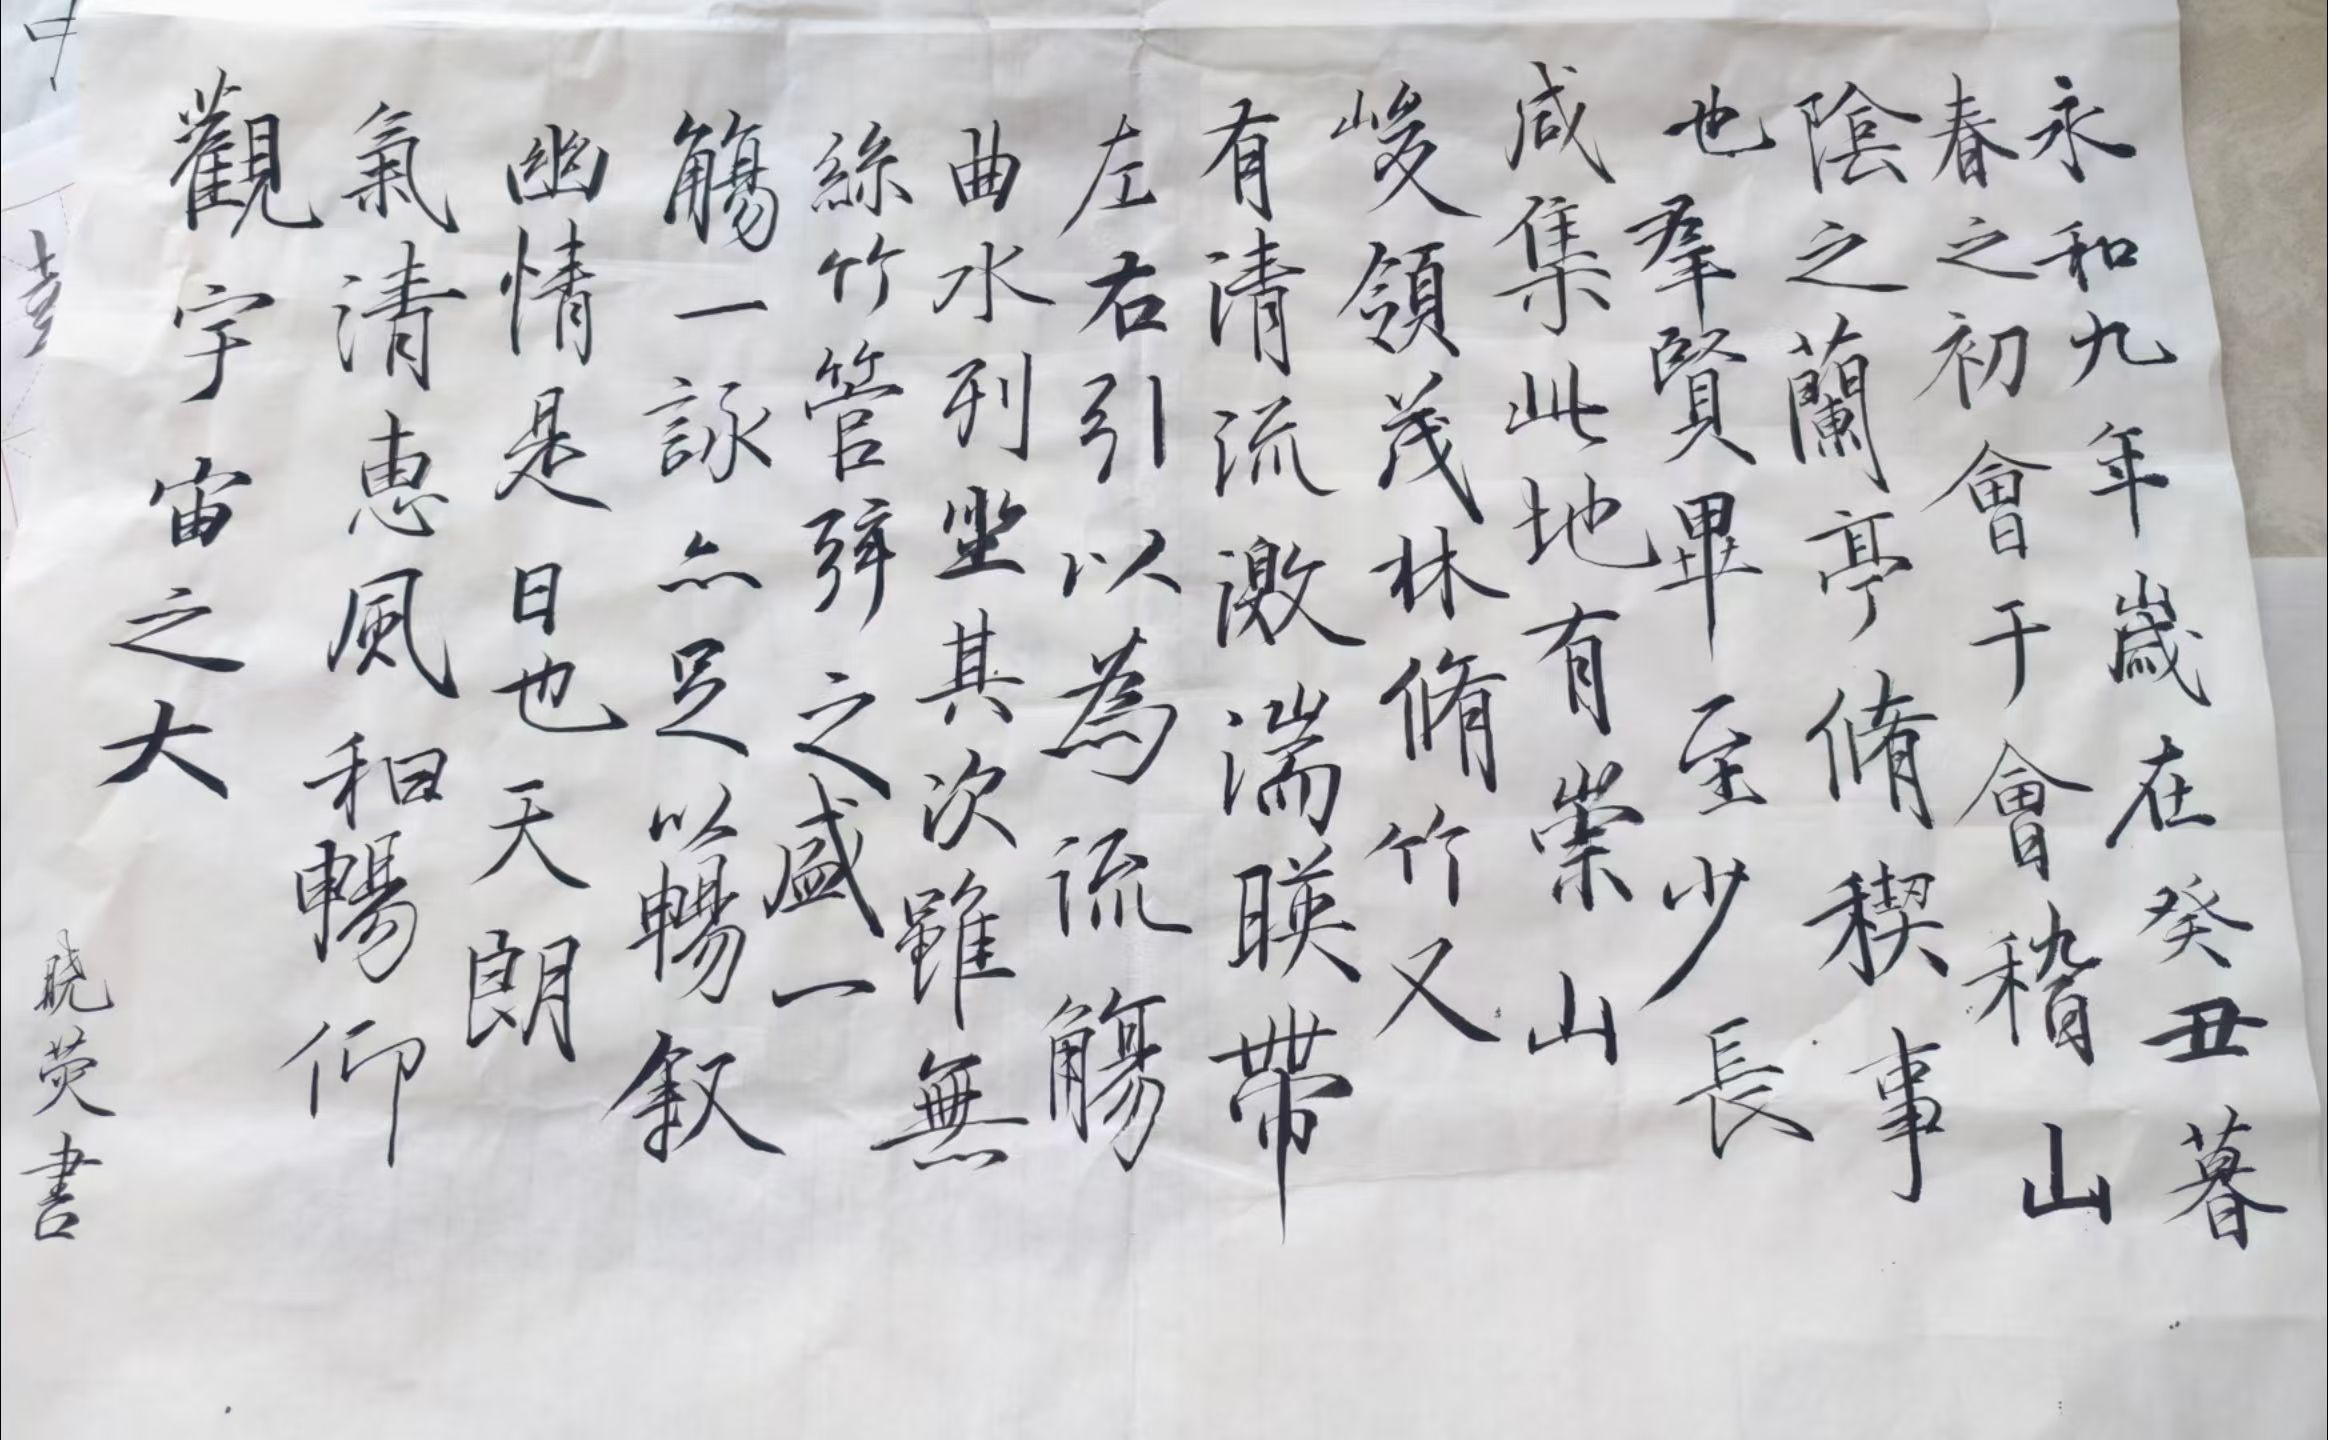 永和九年歲在癸丑暮
春之初會于會稽山
陰之蘭亭脩稧事
也羣賢畢至少長
咸集此地有崇山
峻領茂林脩竹又
有清流激湍暎帶
左右引以為流觴
曲水列坐其次雖無
絲竹管弦之盛一
觴一詠亦足以暢敘
幽情是日也天朗
氣清惠風和暢仰
觀宇宙之大
晓荧書
中